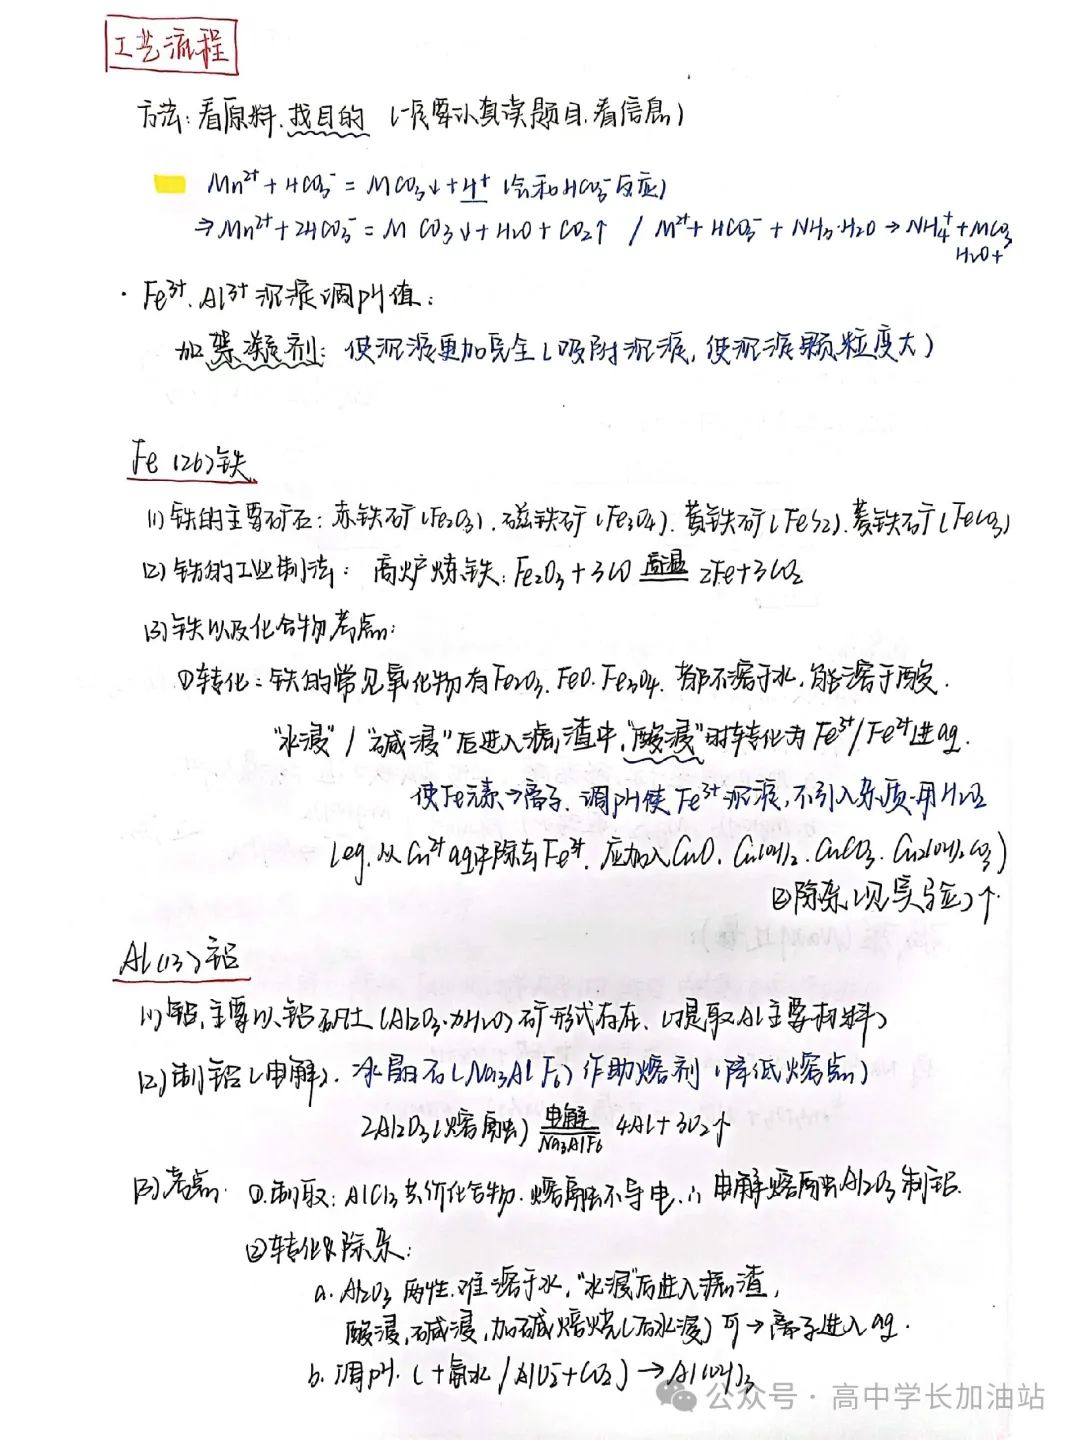 工艺流程
方法：看原料.找目的（一定要认真读题目.看信息）
Mn²⁺+HCO₃⁻=MCO₃↓+H⁺（会和HCO₃⁻反应）
⇒Mn²⁺+2HCO₃⁻=MCO₃↓+H₂O+CO₂↑ / M²⁺+HCO₃⁻+NH₃·H₂O→NH₄⁺+MCO₃
H₂O+
·Fe³⁺.Al³⁺沉淀调pH值：
加絮凝剂：使沉淀更加完全（吸附沉淀，使沉淀颗粒度大）
Fe(26)铁
(1)铁的主要矿石：赤铁矿(Fe₂O₃).磁铁矿(Fe₃O₄).黄铁矿(FeS₂).菱铁矿(FeCO₃)
(2)铁的工业制法：高炉炼铁：Fe₂O₃+3CO 高温 2Fe+3CO₂
(3)铁以及化合物考点：
①转化：铁的常见氧化物有Fe₂O₃.FeO.Fe₃O₄.都不溶于水，能溶于酸.
"水浸"/"碱浸"后进入滤渣中，"酸浸"时转化为Fe³⁺/Fe²⁺进aq.
使Fe元素→离子.调pH使Fe³⁺沉淀，不引入杂质.用H₂O₂
(eg.从Cu²⁺aq中除去Fe³⁺.应加入CuO.Cu(OH)₂.CuCO₃.Cu₂(OH)₂CO₃)
②除杂(见实验)↑
Al(13)铝
(1)铝.主要以铝矾土(Al₂O₃·nH₂O)矿形式存在.(提取Al主要材料)
(2)制铝(电解).冰晶石(Na₃AlF₆)作助熔剂(降低熔点)
2Al₂O₃(熔融) 电解 Na₃AlF₆ 4Al+3O₂↑
(3)考点.①.制取：AlCl₃共价化合物.熔融不导电.∴电解熔融Al₂O₃制铝.
②转化&除杂：
a.Al₂O₃两性.难溶于水，"水浸"后进入滤渣，
酸浸，碱浸，加碱焙烧(后水浸)可→离子进入aq.
b.调pH.(+氨水/AlO₂⁻+CO₂)→Al(OH)₃
公众号·高中学长加油站